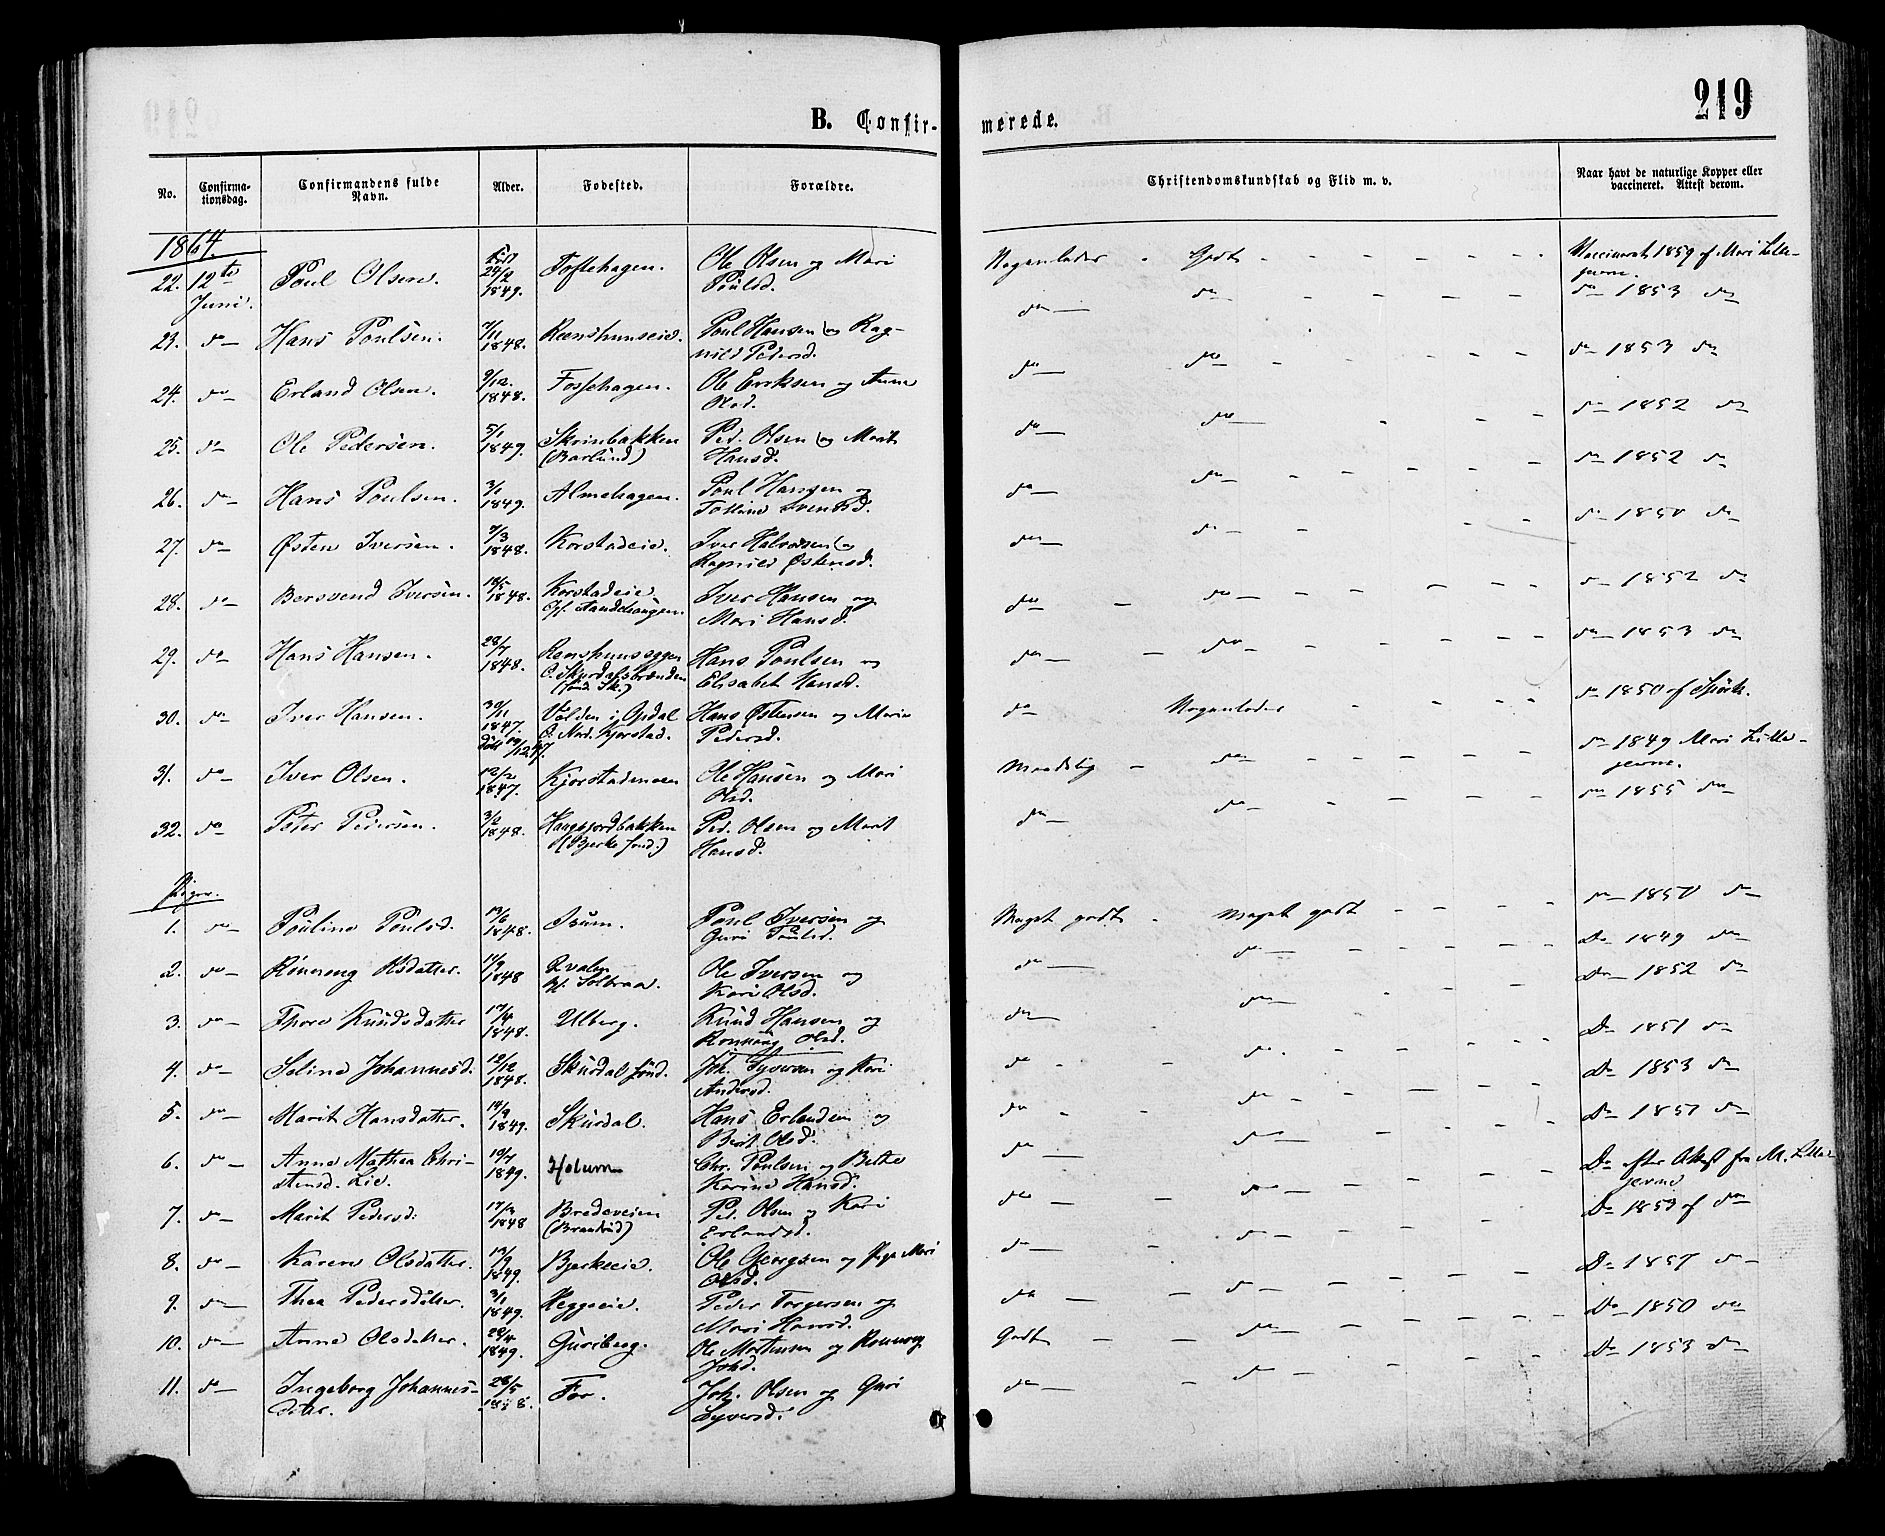 219
B. Confir- merede.
No. Confirma- tionsdag. Confirmandens fulde Navn. Alder. Fødested. Forældre. Christendomskundskab og Flid m. v. Naar havt de naturlige Kopper eller vaccineret. Attest derom.
1864.
22. 12te Juni. Poul Olsen. Født 24/2 1849. Toftehagen. Ole Olsen og Mari Poulsd. Nogenledes - Godt Vaccineret 1859 af Mari Lille-
jevne.
23. do Hans Poulsen. 7/11 1848. Poul Hansen og Rag-
nild Pedersd. do do do 1853 do
24. do Erland Olsen. 9/12. 1848. Fossehagen. Ole Eriksen og Anne
Olsd. do do do 1853 do
25. do Ole Pedersen. 5/1 1849. Skrinbakken Ped. Olsen og Marit
(Barlund) Hansd. do do do 1852 do
26. do Hans Poulsen. 3/1 1849. Almehagen. Poul Hansen og
do do do 1852 do
27. do Østen Iversen. 7/3 1848. Korstadeie. Iver Halvorsen og
Ragnild Østensd. do do do 1850 do
28. do Bersvend Iversen. 1848. Korstadeie Iver Hansen og
Mari Hansd. do do do 1852 do
29. do Hans Hansen. 28/7 1848. Hans Poulsen og
Elisabet Hansd. do do do 1853 do
30. do Iver Hansen. 30/11 1847. Volden i Opdal Hans Østensen og Marie
O. Nord. Kjorstad. Pedersd. do Nogenledes do 1850 af
31. do Iver Olsen. 12/2 1847. Kjorstadmoen Ole Hansen og Mari
Olsd. Maadelig do do 1849 Mari Lille-
jevne.
32. do Peter Pedersen. 3/2 1848. Ped. Olsen og Marit
(Bjerke sønd.) Hansd. do do do 1855 do
Piger.
1. do Pouline Poulsd. 13/6 1848. Isum. Poul Iversen og
Guri Poulsd. Meget godt - meget godt do 1850 do
2. do Rønnoug Olsdatter. 1848 Kvalen Ole Iversen og
Kari Olsd. do do Do 1849 do
3. do Thore Knudsdatter 17/4 1848. Ulberg. Knud Hansen og
Rønnoug Olsd. do do Do 1852 do
4. do Seline Johannesd. 12/12 1848. Skurdal sønd. Joh. Syversen og Kari
Andersd. do do Do 1851 do
5. do Marit Hansdatter. 14/9 1849. Skurdal. Hans Erlandsen og
Berit Olsd. do do Do 1853 do
6. do Anne Mathea Chri- 1849. Holum Chr. Poulsen og Bethe
stensd. Lie. Karine Hansd. do do Do 1851 do
7. do Marit Pedersd. 1848 Bredeveien Ped. Olsen og Kari
(Brandrud) Erlandsd. do do Do efter Attest fra M. Lille-
jevne
8. do Karen Olsdatter. 13/9 1849. Bjerkeeie. Ole Georgsen og Pige Mari
Olsd. do do Do 1853 af do
9. do Thea Pedersdatter. 3/1 1849. Heggeeie. Peder Torgersen og
Mari Hansd. do do Do 1857 do
10. do Anne Olsdatter. 28/4 1849. Guriberg. Ole Mortensen og Rønnoug
Johd. Godt do Do 1850 do
11. do Ingeborg Johannes- 28/5 1848. For. Joh. Olsen og Guri
datter. Syversd. do do Do 1853 do